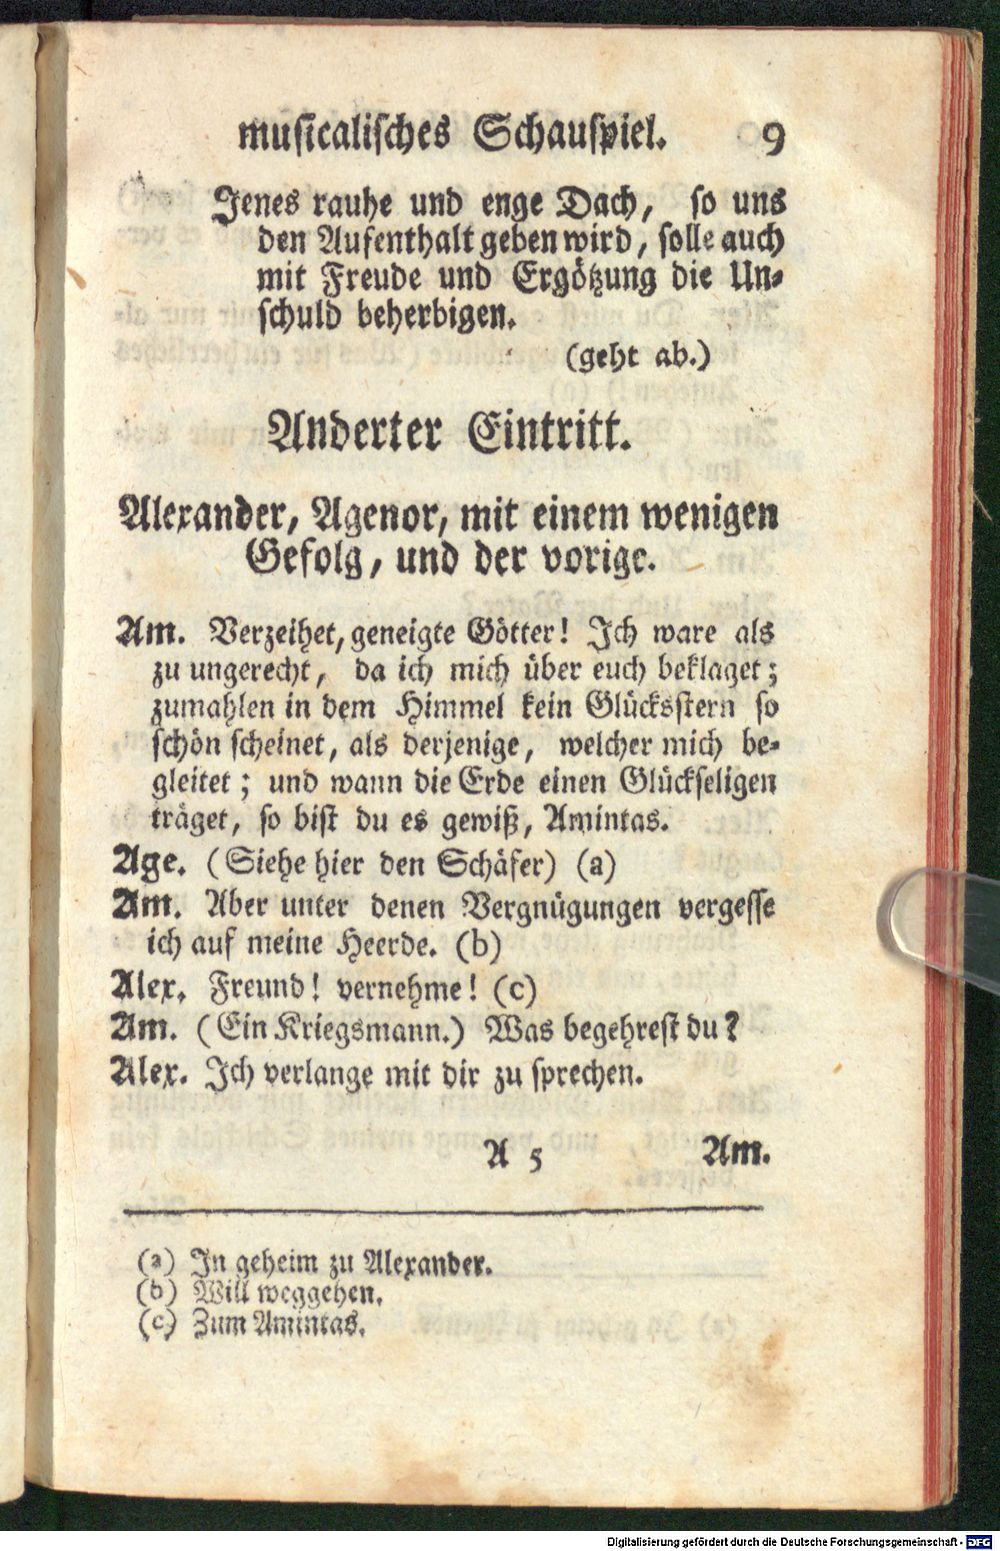 musicalisches Schauspiel. 9
Jenes rauhe und enge Dach, so uns
den Aufenthalt geben wird, solle auch
mit Freude und Ergötzung die Un-
schuld beherbigen.
(geht ab.)
Anderter Eintritt.
Alexander, Agenor, mit einem wenigen
Gefolg, und der vorige.
Am. Verzeihet, geneigte Götter! Ich ware als
zu ungerecht, da ich mich über euch beklaget;
zumahlen in dem Himmel kein Glücksstern so
schön scheinet, als derjenige, welcher mich be-
gleitet; und wann die Erde einen Glückseligen
träget, so bist du es gewiß, Amintas.
Age. (Siehe hier den Schäfer) (a)
Am. Aber unter denen Vergnügungen vergesse
ich auf meine Heerde. (b)
Alex. Freund! vernehme! (c)
Am. (Ein Kriegsmann.) Was begehrest du?
Alex. Ich verlange mit dir zu sprechen.
A 5 Am.
(a) In geheim zu Alexander.
(b) Will weggehen.
(c) Zum Amintas.
Digitalisierung gefördert durch die Deutsche Forschungsgemeinschaft - DFG